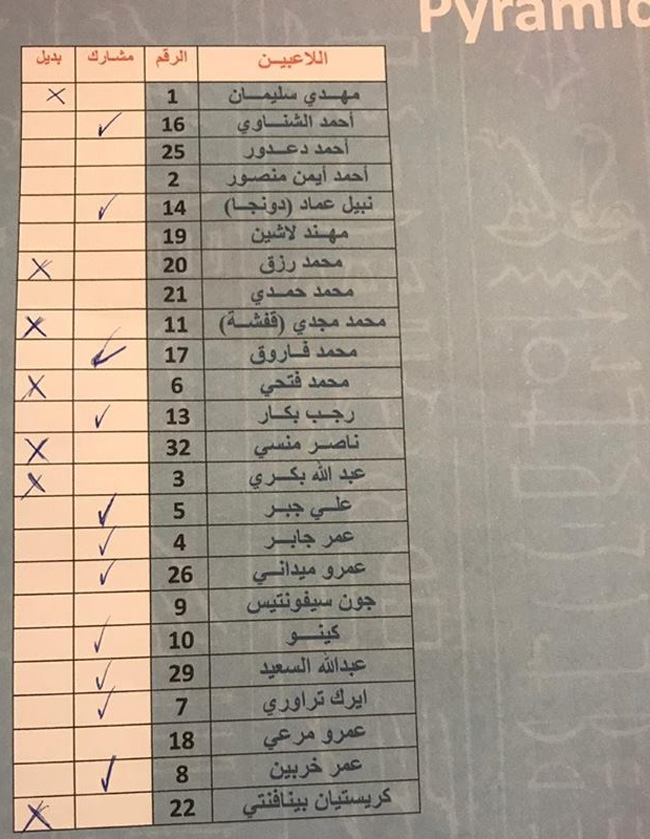 Pyramid
اللاعبين الرقم مشارك بديل
مهدي سليمان 1 ×
أحمد الشناوي 16 ✓
أحمد دعدور 25
أحمد أيمن منصور 2
نبيل عماد (دونجا) 14 ✓
مهند لاشين 19
محمد رزق 20 ×
محمد حمدي 21
محمد مجدي (قفشة) 11 ×
محمد فاروق 17 ✓
محمد فتحي 6 ×
رجب بكار 13 ✓
ناصر منسي 32 ×
عبد الله بكري 3 ×
علي جبر 5 ✓
عمر جابر 4 ✓
عمرو ميداني 26 ✓
جون سيفونتيس 9
كينو 10 ✓
عبدالله السعيد 29 ✓
ايرك تراوري 7 ✓
عمرو مرعي 18
عمر خربين 8 ✓
كريستيان بينافنتي 22 ×